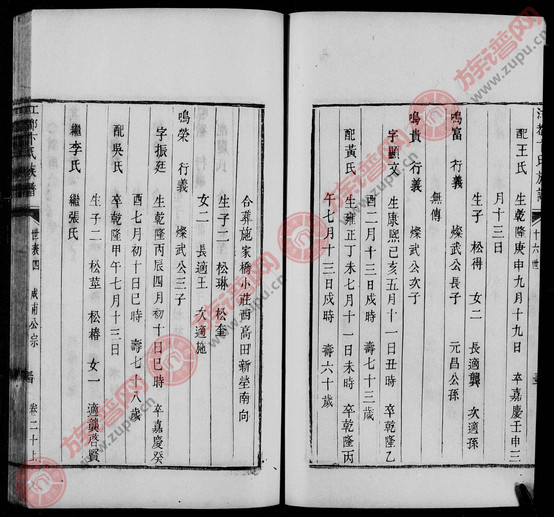 江都卞氏族譜
十六世
配王氏 生乾隆庚申九月十九日 卒嘉慶壬申三
月十三日
生子一 松得 女二 長適龔 次適孫
鳴富 行義 燦武公長子 元昌公孫
無傳
鳴貴 行義 燦武公次子
字顯文 生康熙己亥五月十一日丑時 卒乾隆乙
酉二月十三日戌時 壽七十三歲
配黃氏 生雍正丁未七月十一日未時 卒乾隆丙
午七月十三日戌時 壽六十歲
合葬施家橋小莊西高田新塋南向
生子二 松琳 松奎
女二 長適王 次適施
鳴榮 行義 燦武公三子
字振廷 生乾隆丙辰四月初十日巳時 卒嘉慶癸
酉七月初十日巳時 壽七十八歲
配吳氏 卒乾隆甲午七月十三日
生子二 松莖 松椿 女一 適龔啓賢
繼李氏 繼張氏
江都卞氏族譜
世表四 咸甫公宗
卷二十上
族谱网
www.zupu.cn
族谱网
www.zupu.cn
族谱网
www.zupu.cn